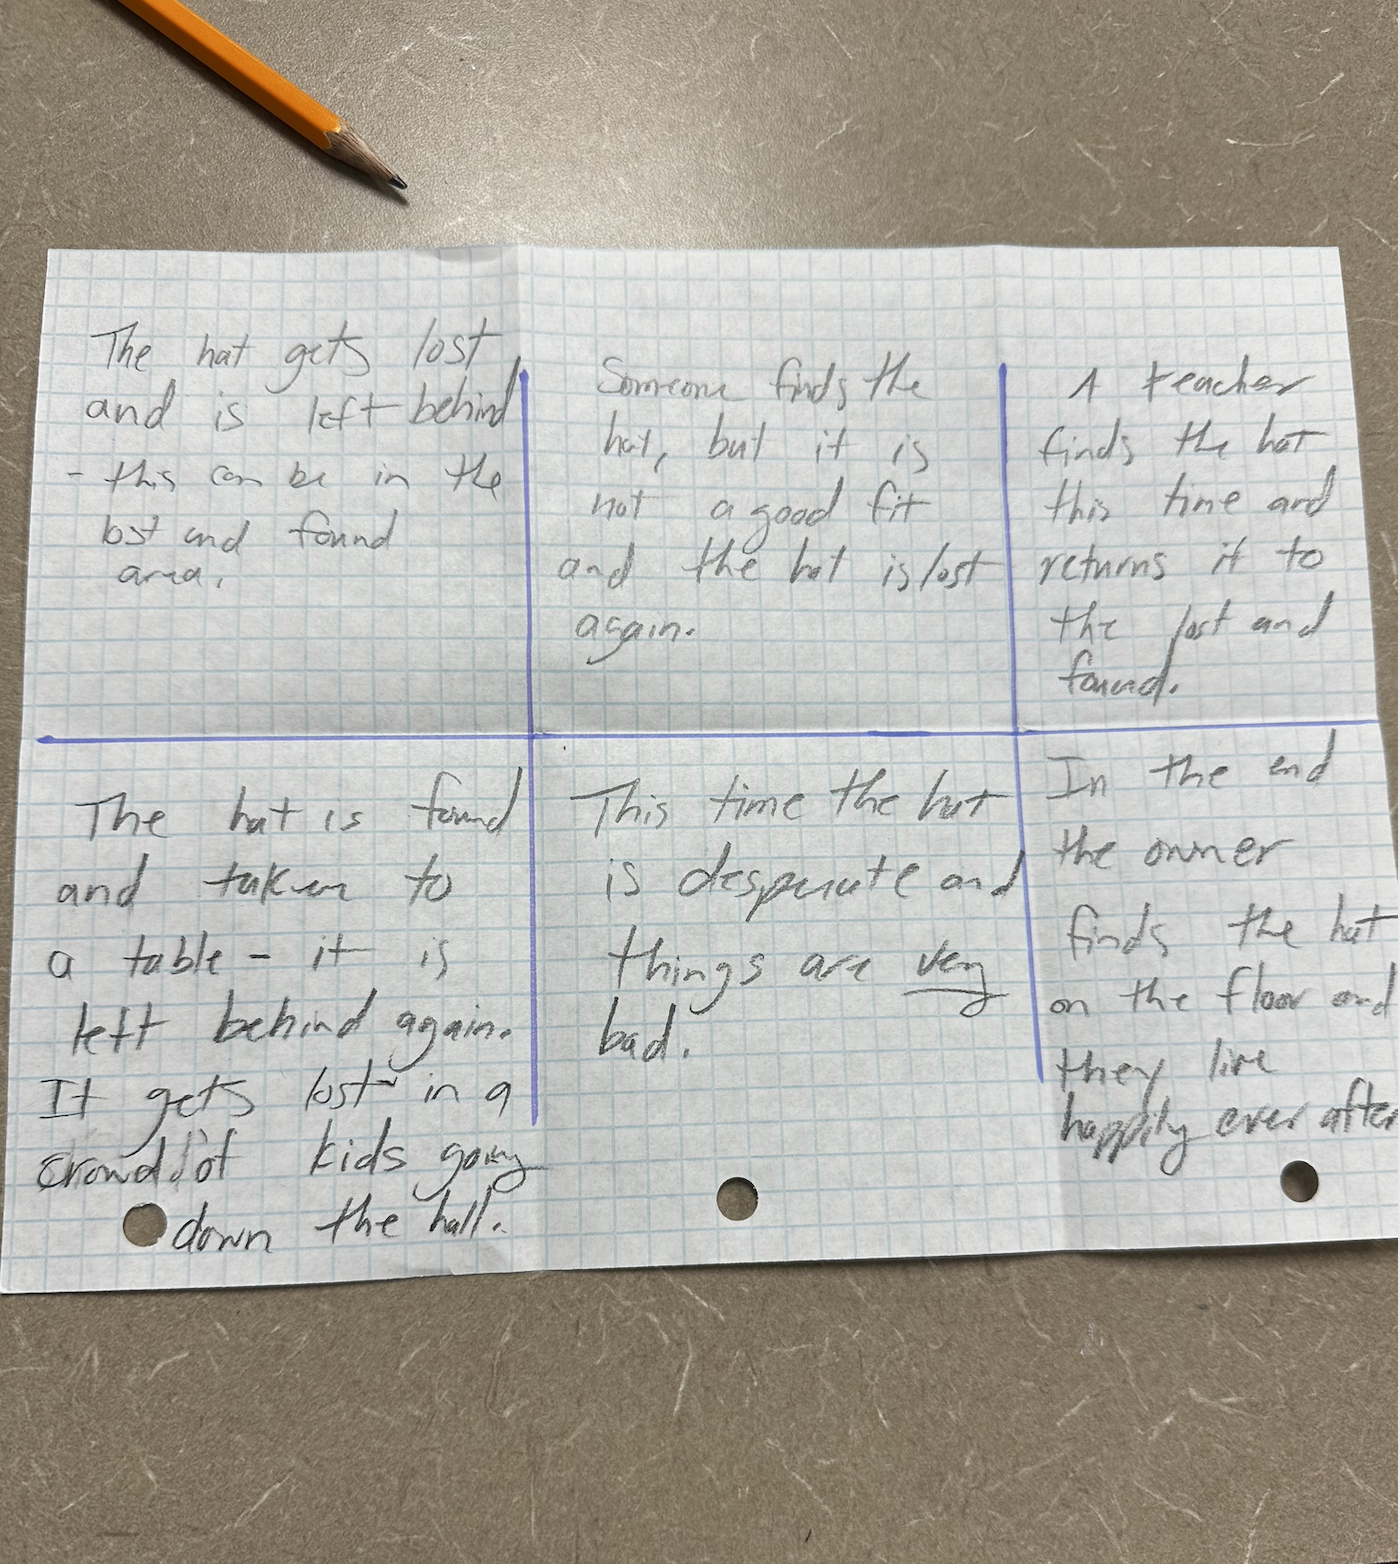 The hat gets lost
and is left behind
- this can be in the
lost and found
area.
Someone finds the
hat, but it is
not a good fit
and the hat is lost
again.
A teacher
finds the hat
this time and
returns it to
the lost and
found.
The hat is found
and taken to
a table - it is
left behind again.
It gets lost in a
crowd of kids going
down the hall.
This time the hat
is desperate and
things are very
bad.
In the end
the owner
finds the hat
on the floor and
they live
happily ever after